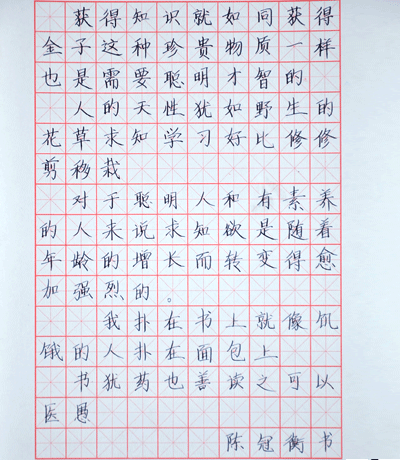 获得知识就如同获得
金子这种珍贵物质一样
也是需要聪明才智的
人的天性犹如野生的
花草求知学习好比修修
剪移栽
对于聪明人和有素养
的人来说求知欲是随着
年龄的增长而转变得愈
加强烈的。
我扑在书上就像饥
饿的人扑在面包上
书犹药也善读之可以
医愚
陈冠衡书